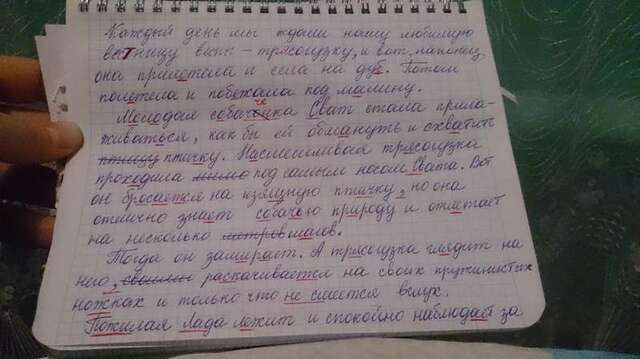 Каждый день мы ждали нашу любимую
вестницу весны - трясогузку, и вот, наконец,
она прилетела и села на дуб. Потом
полетела и побежала под малину.
Молодая собачонка Сват стала прила-
живаться, как бы ей обмануть и схватить
птицу птичку. Насмешливая трясогузка
проходила мимо под самым носом Свата. Вот
он бросается на изящную птичку, но она
отлично знает собачью природу и отлетает
на несколько метров шагов.
Тогда он замирает. А трясогузка глядит на
него, раскачивается на своих пружинистых
ножках и только что не смеется вслух.
Пожилая Лада лежит и спокойно наблюдает за